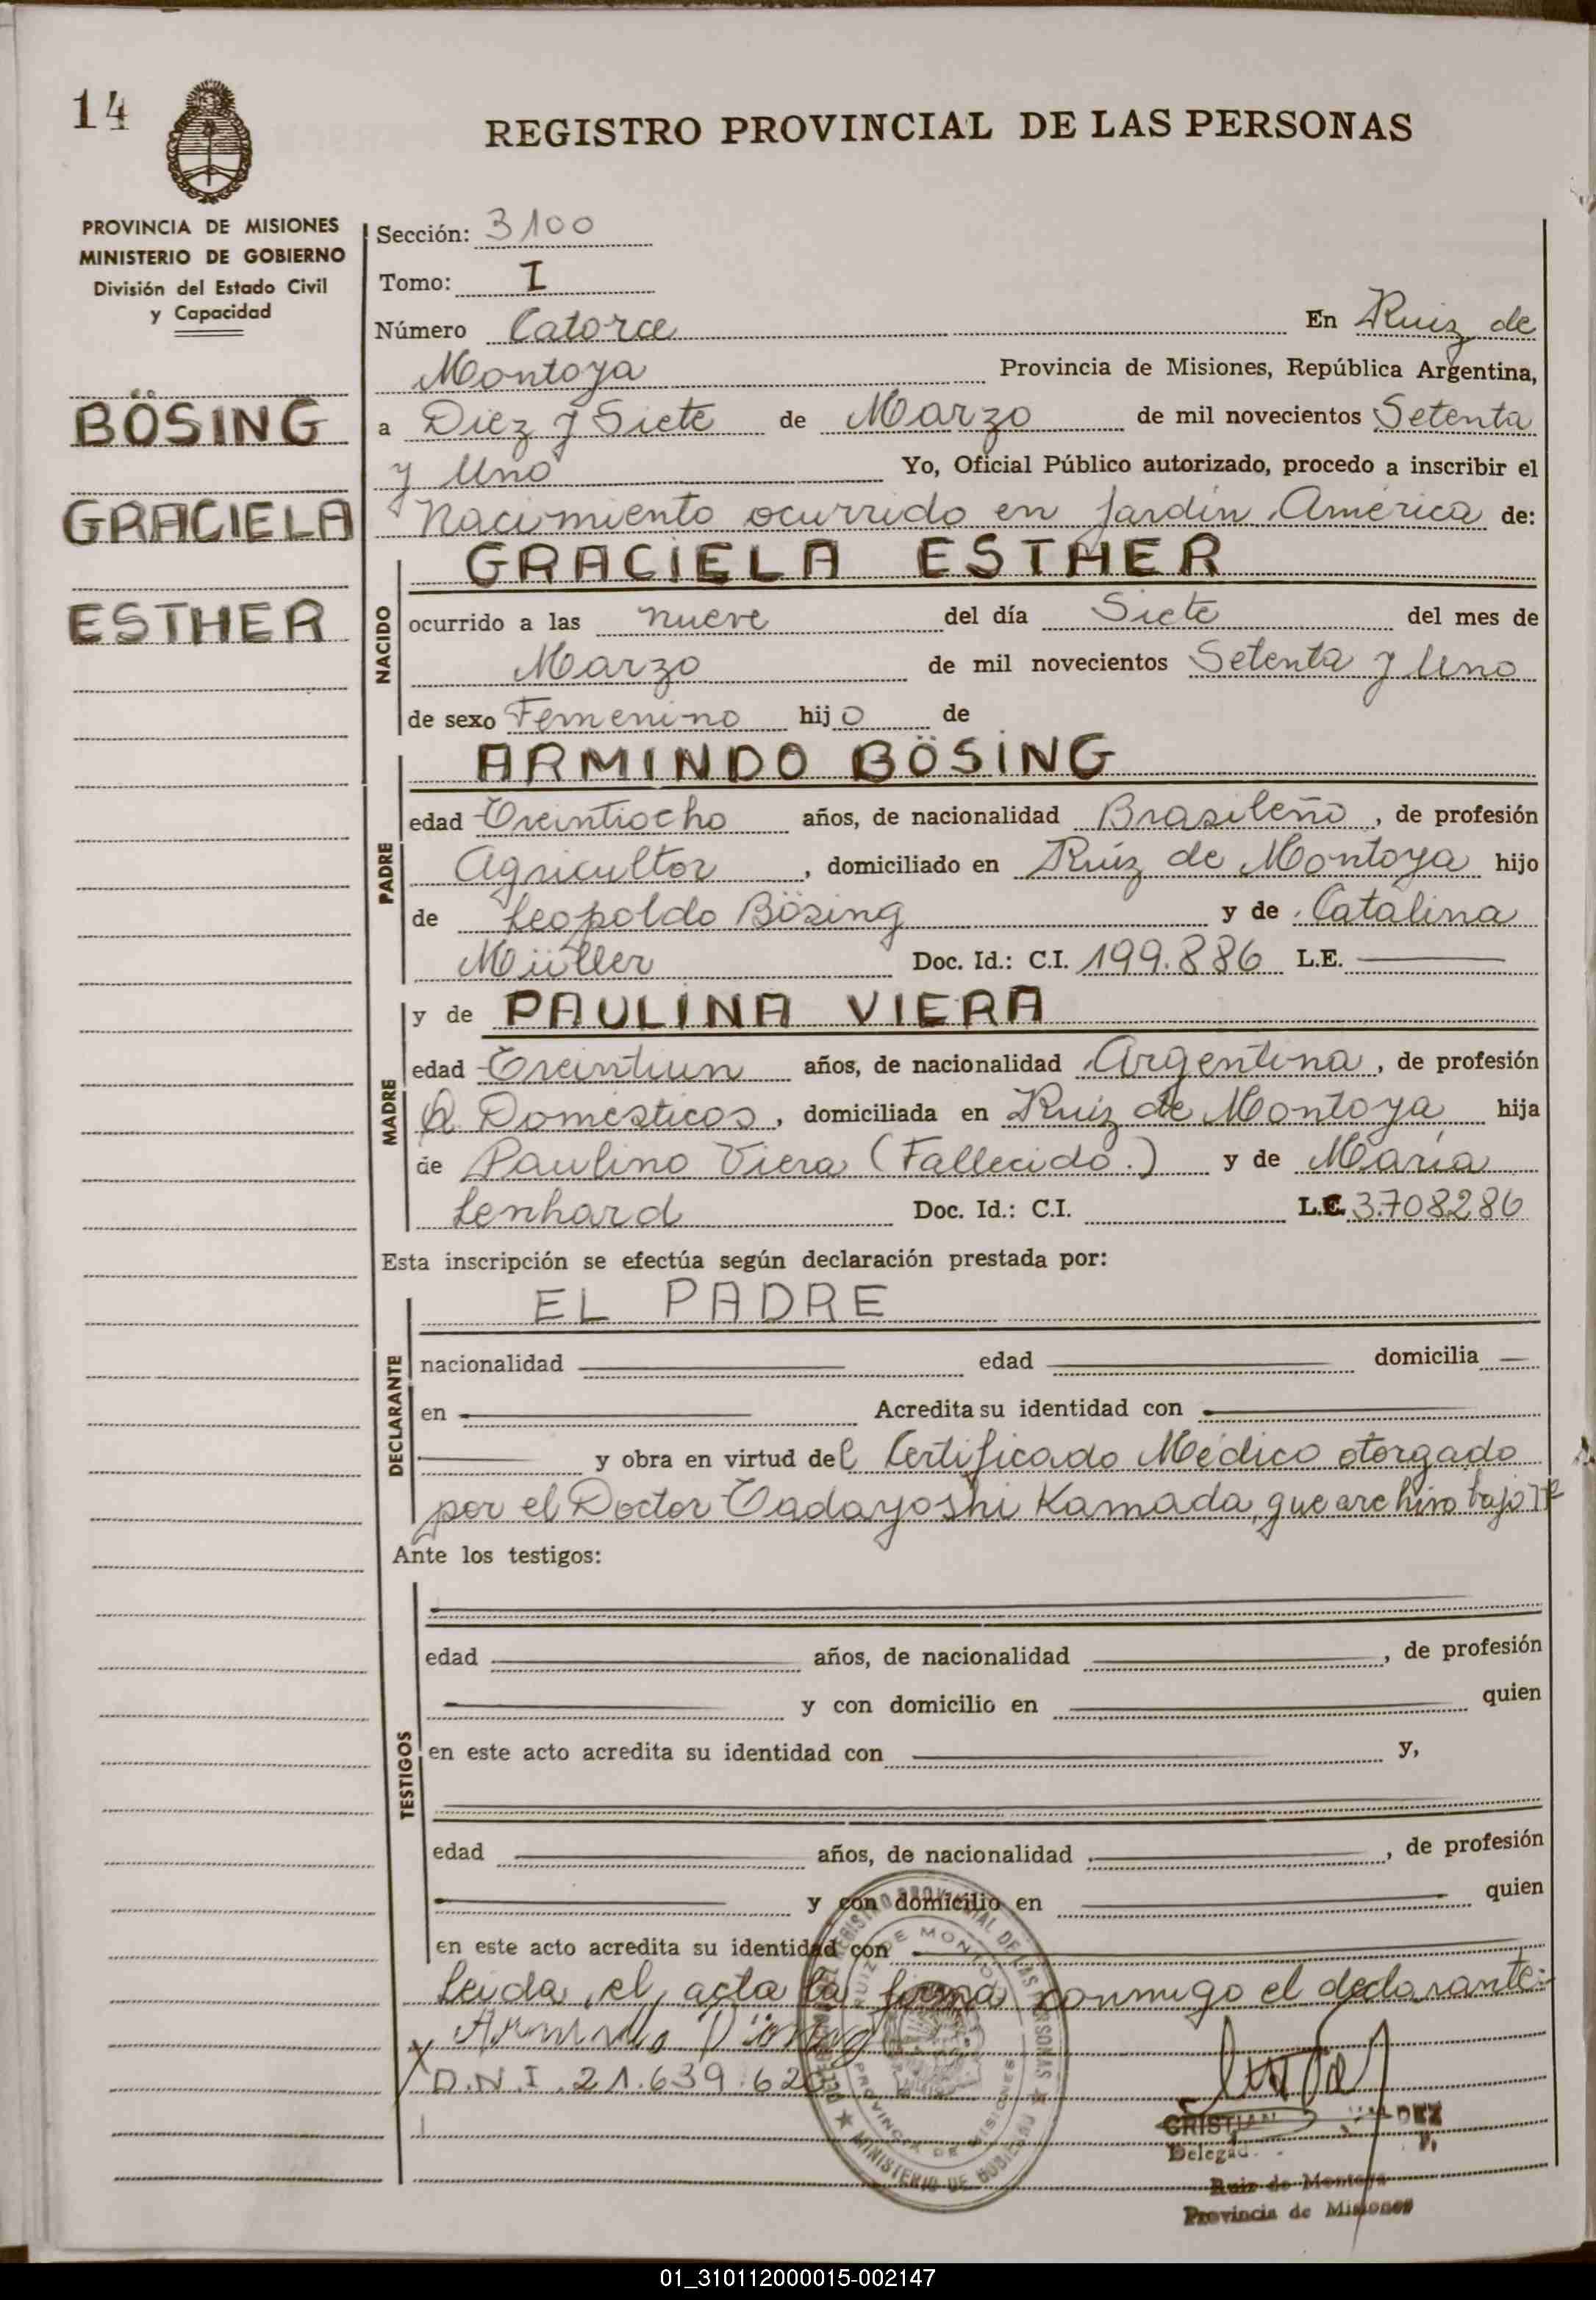 14
REGISTRO PROVINCIAL DE LAS PERSONAS
PROVINCIA DE MISIONES
MINISTERIO DE GOBIERNO
División del Estado Civil
y Capacidad
BÖSING
GRACIELA
ESTHER
Sección: 3100
Tomo: I
Número Catorce En Ruiz de
Montoya Provincia de Misiones, República Argentina,
a Diez y Siete de Marzo de mil novecientos Setenta
y Uno Yo, Oficial Público autorizado, procedo a inscribir el
Nacimiento ocurrido en Jardín América de:
NACIDO
GRACIELA ESTHER
ocurrido a las nueve del día Siete del mes de
Marzo de mil novecientos Setenta y Uno
de sexo Femenino hijo de
PADRE
ARMINDO BÖSING
edad Treintiocho años, de nacionalidad Brasileño, de profesión
Agricultor, domiciliado en Ruiz de Montoya hijo
de Leopoldo Bösing y de Catalina
Müller Doc. Id.: C.I. 199.886 L.E.
MADRE
y de PAULINA VIERA
edad Treintiun años, de nacionalidad Argentina, de profesión
Q. Domésticos, domiciliada en Ruiz de Montoya hija
de Paulino Viera (Fallecido.) y de María
Lenhard Doc. Id.: C.I. L.C. 3.708.286
Esta inscripción se efectúa según declaración prestada por:
DECLARANTE
EL PADRE
nacionalidad edad domicilia
en Acredita su identidad con
y obra en virtud del Certificado Médico otorgado
por el Doctor Tadayoshi Kamada, que archivo bajo
Ante los testigos:
TESTIGOS
edad años, de nacionalidad , de profesión
y con domicilio en quien
en este acto acredita su identidad con y,
edad años, de nacionalidad , de profesión
y con domicilio en quien
en este acto acredita su identidad con
Leida, el acta la firma conmigo el declarante:
Armindo Bösing
D.N.I. 21.639.620
REGISTRO PROVINCIAL DE LAS PERSONAS
RUIZ DE MONTOYA
PROVINCIA DE MISIONES
MINISTERIO DE GOBIERNO
CRISTIAN
Ruiz de Montoya
Provincia de Misiones
01_310112000015-002147